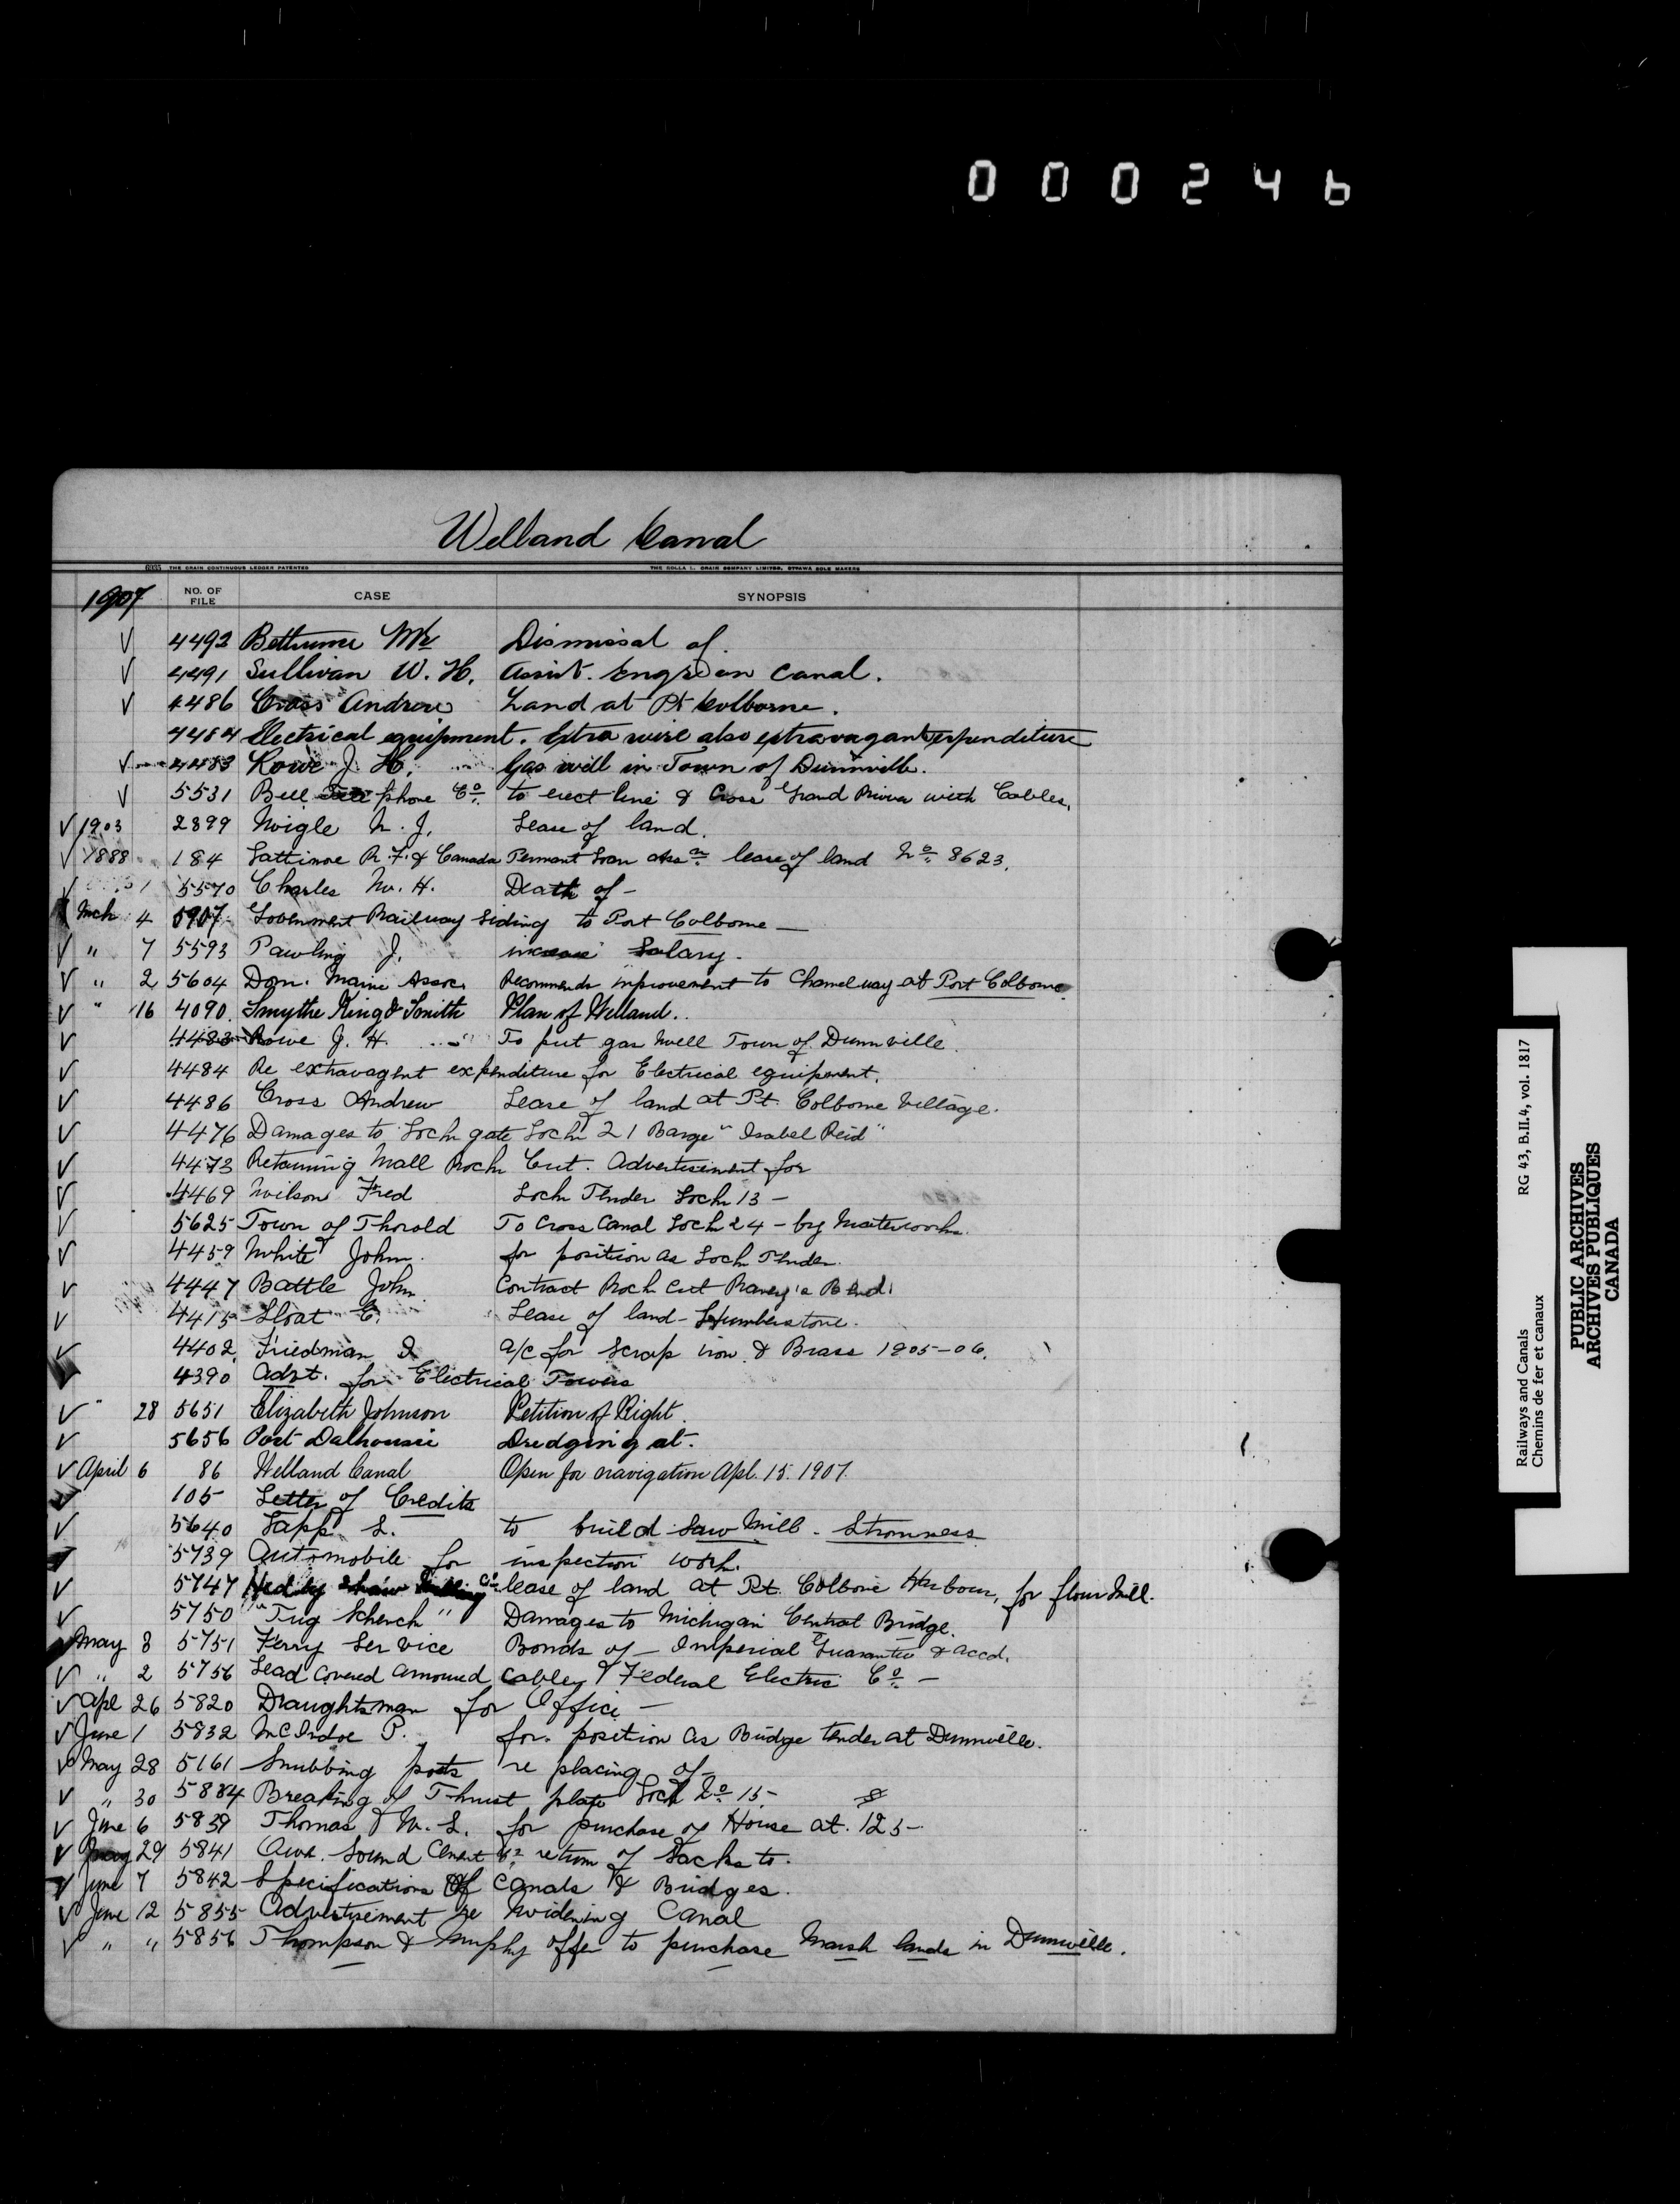 000246
Welland Canal
6935 THE CRAIN CONTINUOUS LEDGER PATENTED THE ROLLA L. CRAIN COMPANY LIMITED, OTTAWA SOLE MAKERS
1907 NO. OF FILE CASE SYNOPSIS
√ 4492 Bethune Mr Dismissal of.
√ 4491 Sullivan W. H. Assist. Engr on Canal.
√ 4486 Cross Andrew Land at Pt Colborne.
4484 Electrical equipment. Extra wire also extravagant expenditure
√ 4483 Rowe J. H. Gas well in Town of Dunnville.
√ 5531 Bell Telephone Co. to erect line & Cross Grand River with Cables.
√ 1903 2899 Wigle N. J. Lease of land.
√ 1888 184 Lattimore R. F. & Canada Permant Loan Assn. lease of land No. 8623.
√ 1 5570 Charles W. H. Death of -
Mch 4 5907 Government Railway Siding to Port Colborne -
√ " 7 5593 Pawling J. increase Salary.
√ " 2 5604 Dom. Marine Assoc. Recommends improvement to Channel way at Port Colborne.
√ " 16 4090. Smythe King & Smith Plan of Welland.
√ 4483 Rowe J. H. To put gas Well Town of Dunnville.
√ 4484 Re extravagent expenditure for Electrical equipment.
√ 4486 Cross Andrew Lease of land at Pt. Colborne Village.
√ 4476 Damages to Lock gate Lock 21 Barge "Isabel Reid"
√ 4473 Retaining Wall Rock Cut. Advertisement for
√ 4469 Wilson Fred Lock Tender Lock 13 -
√ 5625 Town of Thorold To Cross Canal Lock 24 - by Waterworks.
√ 4459 White John. for position as Lock Tender.
√ 4447 Battle John Contract Rock Cut Ramey's Bend.
√ 4415 Sloat C. Lease of land - Humberstone.
√ 4402 Friedman I a/c for Scrap iron & Brass 1905-06.
4390 Advt. for Electrical Towers
√ " 28 5651 Elizabeth Johnson Petition of Right.
√ 5656 Port Dalhousie Dredging at.
√ April 6 86 Welland Canal Open for navigation Apl. 15. 1907.
√ 105 Letter of Credits
√ 5640 Tapp L. to build Saw Mill - Stromness
5739 Automobile for inspection work.
√ 5747 Hedley Shaw Milling Co. lease of land at Pt. Colborne Harbour, for flour Mill.
√ 5750 "Tug Schenck" Damages to Michigan Central Bridge.
May 8 5751 Ferry Service Bonds of - Imperial Guarantee & Accd.
√ " 2 5756 Lead Covered Armoured Cables & Federal Electric Co. -
√ Apl 26 5820 Draughtsman for Office -
√ June 1 5832 McIndoe P. for position as Bridge tender at Dunnville.
√ May 28 5161 Snubbing posts re placing of -
√ " 30 5884 Breaking of Thrust plate Lock No. 15 -
√ June 6 5839 Thomas W. L. for purchase of House at. 125 -
√ May 29 5841 Owen Sound Cement Co. return of Sacks to.
√ June 7 5842 Specifications of Canals & Bridges.
√ June 12 5855 Advertisement re Widening Canal
√ " " 5856 Thompson & Murphy offer to purchase Marsh lands in Dunnville.
Railways and Canals RG 43, B.II.4, vol. 1817
Chemins de fer et canaux
PUBLIC ARCHIVES
ARCHIVES PUBLIQUES
CANADA